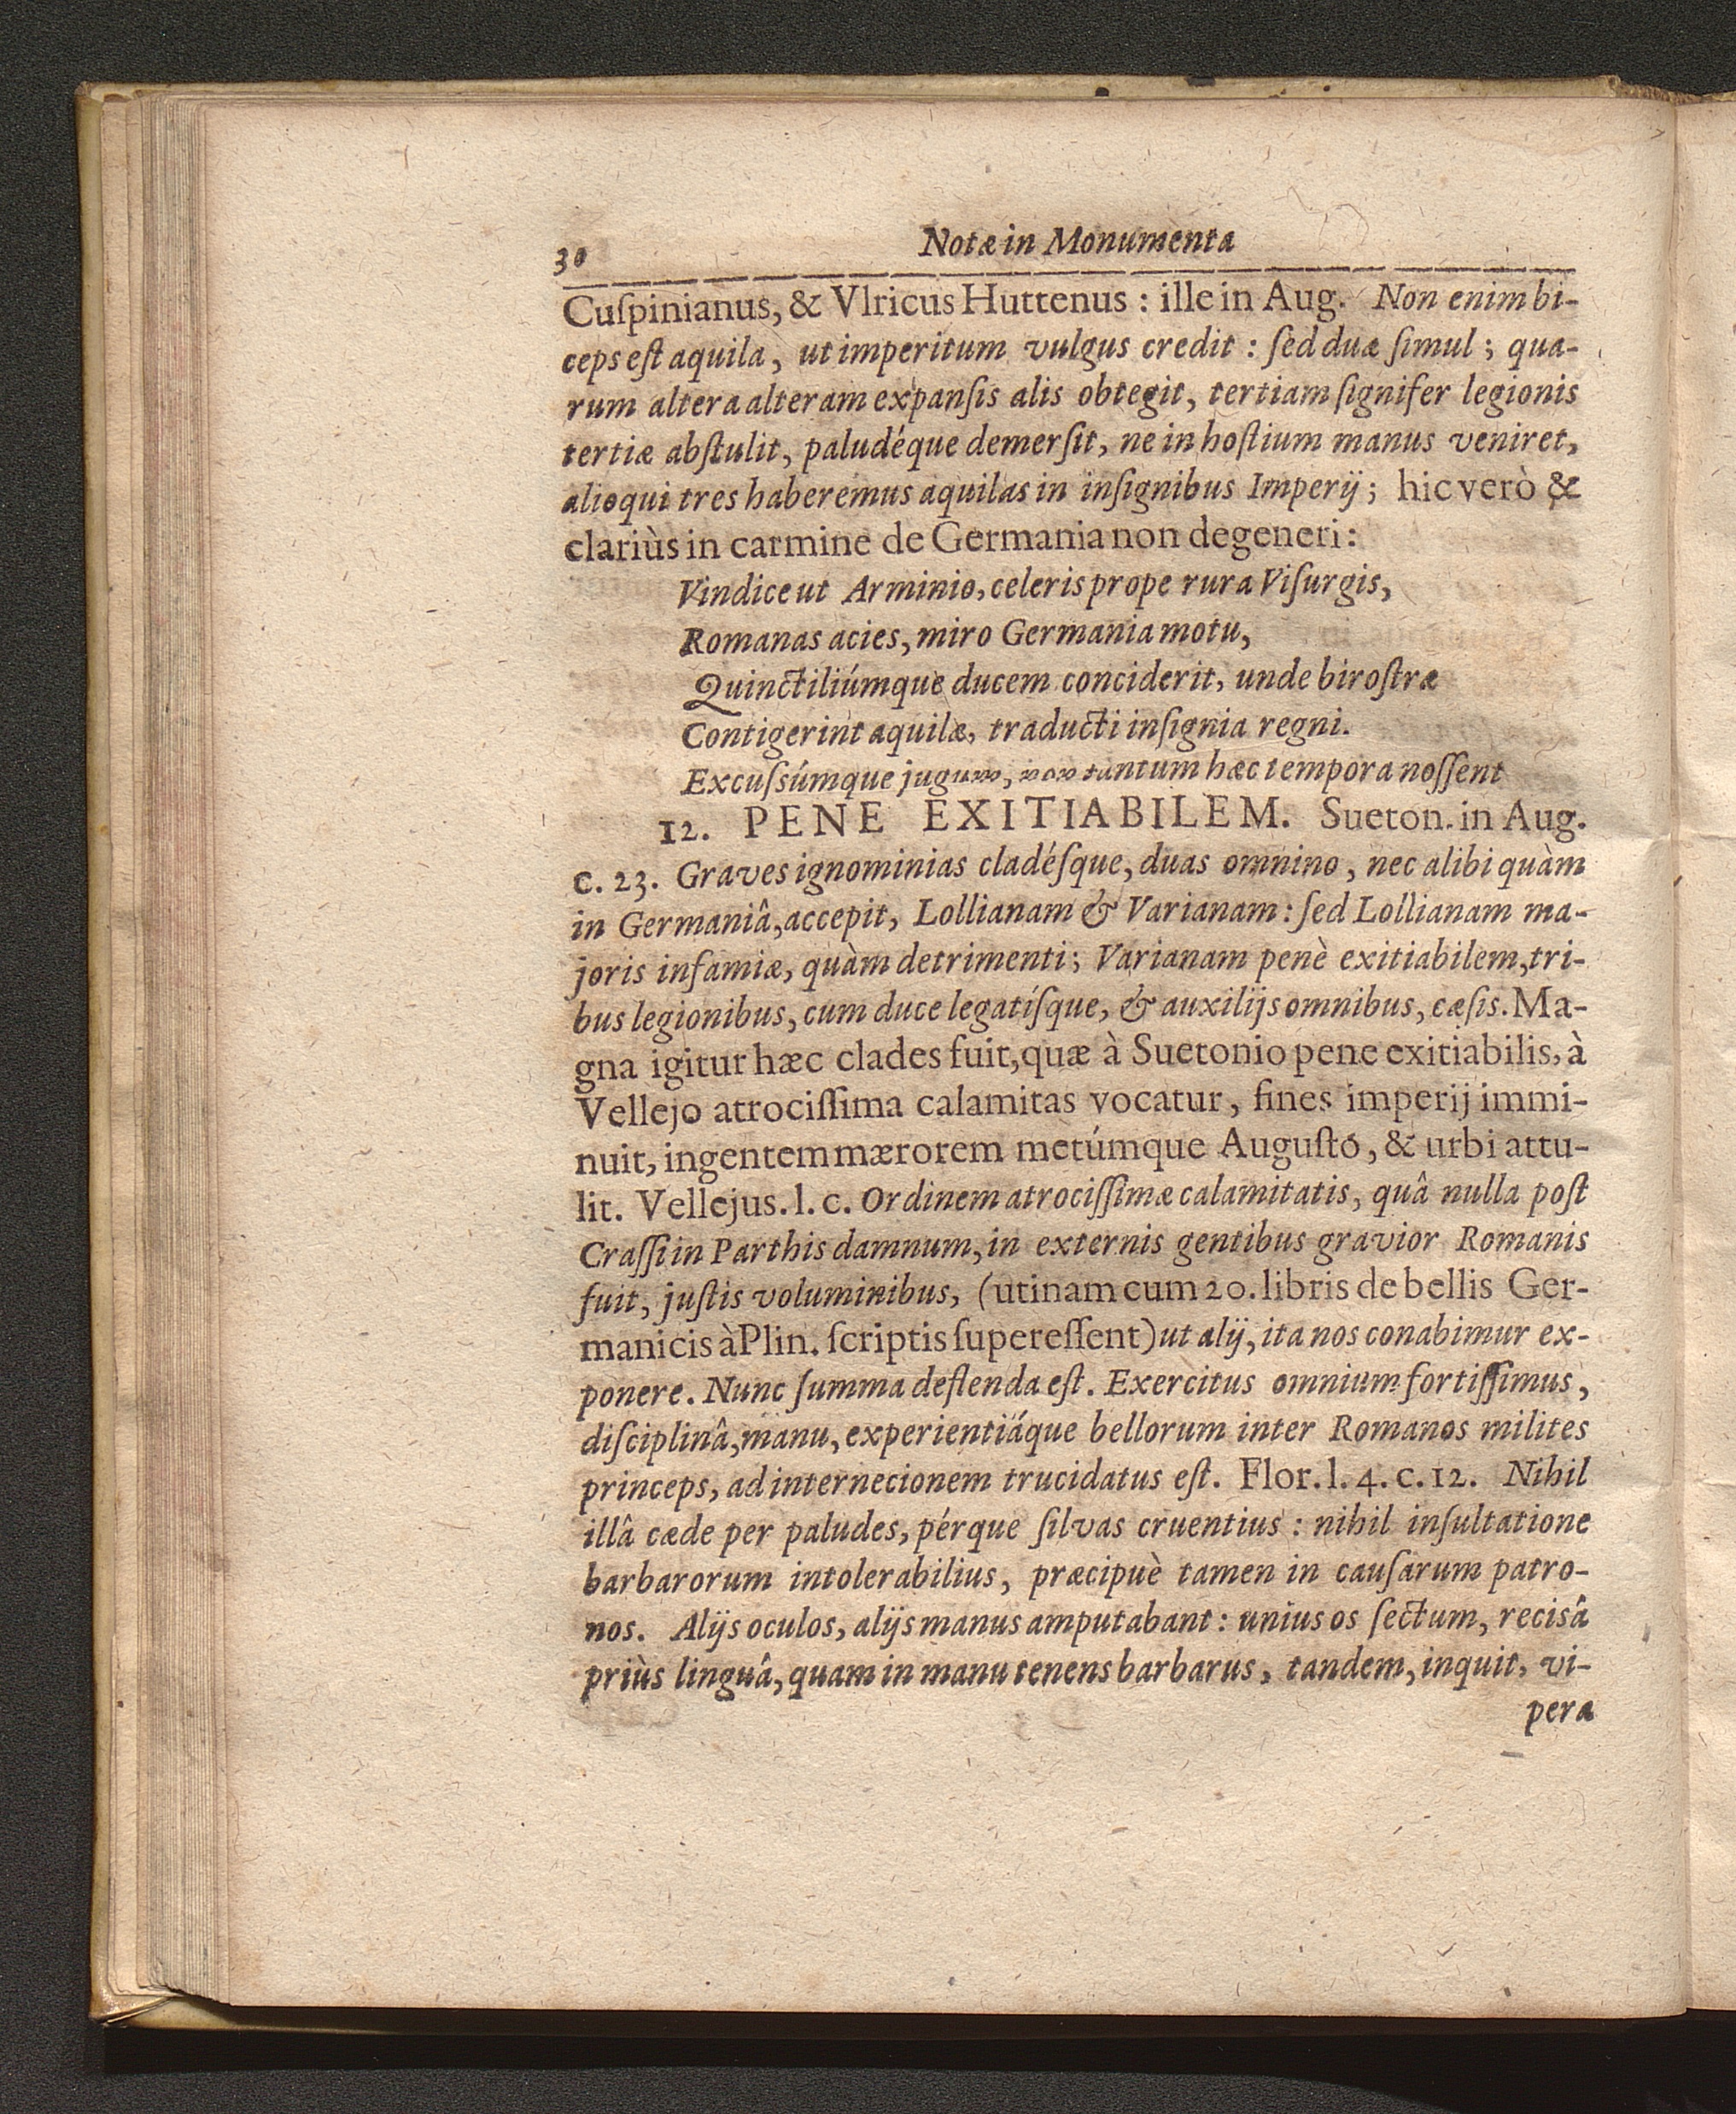 30 Notæ in Monumenta
Cuſpinianus, & Vlricus Huttenus : ille in Aug. Non enim bi-
ceps eſt aquila, ut imperitum vulgus credit : ſed duæ ſimul ; qua-
rum altera alteram expanſis alis obtegit, tertiam ſignifer legionis
tertiæ abſtulit, paludéque demerſit, ne in hoſtium manus veniret,
alioqui tres haberemus aquilas in inſignibus Imperij ; hic verò &
clariùs in carmine de Germania non degeneri :
Vindice ut Arminio, celeris prope rura Viſurgis,
Romanas acies, miro Germania motu,
Quinctiliúmque ducem conciderit, unde biroſtræ
Contigerint aquilæ, traducti inſignia regni.
Excuſſúmque jugum, non tantum hæc tempora noſſent
12. PENE EXITIABILEM. Sueton. in Aug.
c. 23. Graves ignominias cladéſque, duas omnino, nec alibi quàm
in Germaniâ, accepit, Lollianam & Varianam : ſed Lollianam ma-
joris infamiæ, quàm detrimenti ; Varianam penè exitiabilem, tri-
bus legionibus, cum duce legatíſque, & auxilijs omnibus, cæſis. Ma-
gna igitur hæc clades fuit, quæ à Suetonio pene exitiabilis, à
Vellejo atrociſſima calamitas vocatur, fines imperij immi-
nuit, ingentem mærorem metúmque Auguſto, & urbi attu-
lit. Vellejus. l. c. Ordinem atrociſſimæ calamitatis, quâ nulla poſt
Craſſi in Parthis damnum, in externis gentibus gravior Romanis
fuit, juſtis voluminibus, (utinam cum 20. libris de bellis Ger-
manicis à Plin. ſcriptis ſupereſſent) ut alij, ita nos conabimur ex-
ponere. Nunc ſumma deflenda eſt. Exercitus omnium fortiſſimus,
diſciplinâ, manu, experientiáque bellorum inter Romanos milites
princeps, ad internecionem trucidatus eſt. Flor. l. 4. c. 12. Nihil
illâ cæde per paludes, pérque ſilvas cruentius : nihil inſultatione
barbarorum intolerabilius, præcipuè tamen in cauſarum patro-
nos. Alijs oculos, alijs manus amputabant : unius os ſectum, recisâ
priùs linguâ, quam in manu tenens barbarus, tandem, inquit, vi-
pera